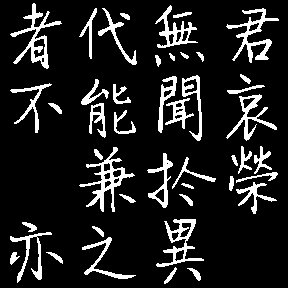 君哀榮
無聞扵異
代能兼之
者不亦